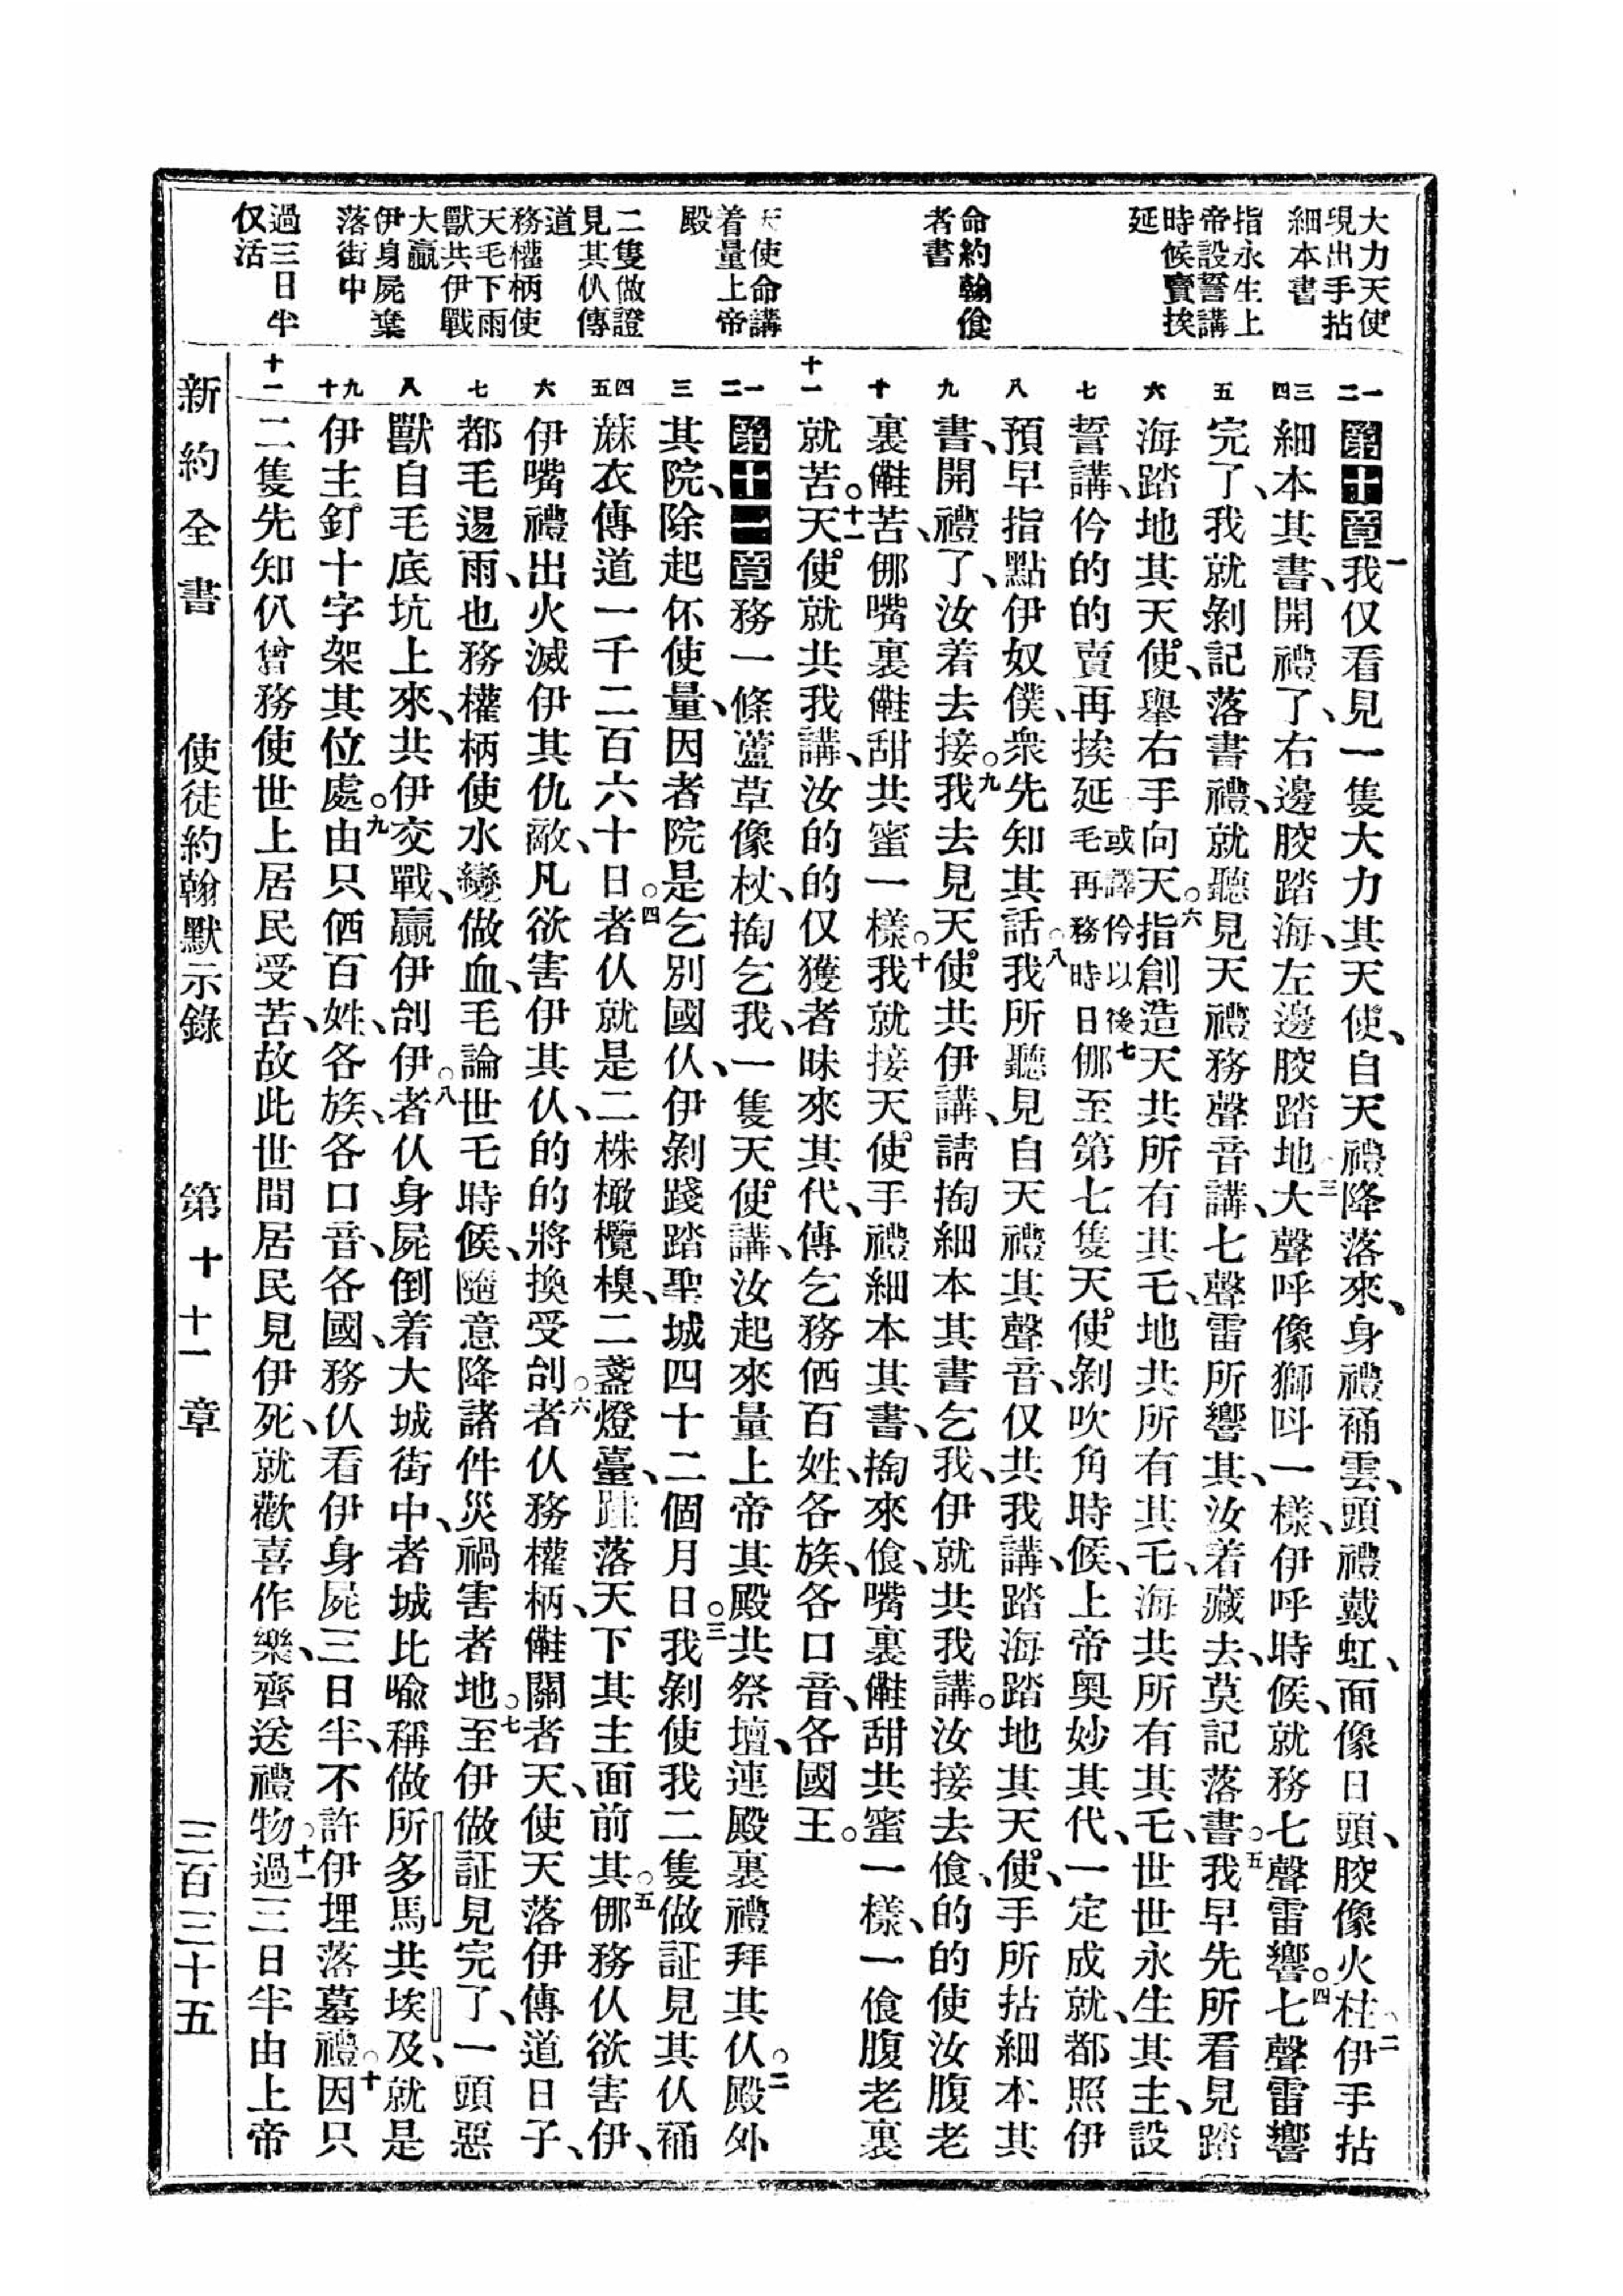 大力天使
現出手拈
細本書
指永生上
帝設誓講
時候賣挨
延
命約翰飧
者書
天使命講
着量上帝
殿
二隻做證
見其仈傳
道
務權柄使
天毛下雨
獸共伊戰
大贏
伊身屍棄
落街中
過三日半
仅活
一二
三四
五
六
七
八
九
十
十一
一二
三
四五
六
七
八
九十
十一
第十章一我仅看見一隻大力其天使、自天禮降落來、身禮桶雲、頭禮戴虹、面像日頭、骹像火柱○二伊手拈
細本其書、開禮了、右邊骹踏海、左邊骹踏地○三大聲呼像獅呌一樣、伊呼時候、就務七聲雷響○四七聲雷響
完了、我就剝記落書禮、就聽見天禮務聲音講、七聲雷所響其、汝着藏去、莫記落書○五我早先所看見踏
海踏地其天使、舉右手向天○六指創造天共所有其乇、地共所有其乇、海共所有其乇、世世永生其主、設
誓講、伱的的賣再挨延或譯伱以後毛再務時日○七㑚至第七隻天使剝吹角時候、上帝奧妙其代、一定成就、都照伊
預早指點伊奴僕、衆先知其話○八我所聽見自天禮其聲音、仅共我講、踏海踏地其天使、手所拈細本其
書、開禮了、汝着去接○九我去見天使共伊講、請掏細本其書乞我、伊就共我講。汝接去飧、的的使汝腹老
裏㒕苦、㑚嘴裏㒕甜共蜜一樣○十我就接天使手禮細本其書、掏來飧、嘴裏㒕甜共蜜一樣、一飧腹老裏
就苦○十一天使就共我講、汝的的仅獲者昧來其代、傳乞務㑉百姓、各族、各口音、各國王。
第十一章務一條蘆草像杖、掏乞我、一隻天使講、汝起來量上帝其殿共祭壇、連殿裏禮拜其仈○二殿外
其院、除起伓使量、因者院是乞別國仈、伊剝踐踏聖城四十二個月日○三我剝使我二隻做証見其仈桶
蔴衣傳道一千二百六十日○四者仈就是二株橄欖樹、二盞燈臺、跬落天下其主面前其○五㑚務仈欲害伊、
伊嘴禮出火滅伊其仇敵、凡欲害伊其仈、的的將換受刣○六者仈務權柄、㒕關者天、使天落伊傳道日子、
都毛逿雨、也務權柄使水變做血、毛論世乇時候、隨意降諸件災禍害者地○七至伊做証見完了、一頭惡
獸自毛底坑上來、共伊交戰、贏伊刣伊○八者仈身屍倒着大城街中、者城比喻稱做所多馬共埃及、就是
伊主釘十字架其位處○九由只㑉百姓、各族、各口音、各國、務仈看伊身屍三日半、不許伊埋落墓禮○十因只
二隻先知仈曾務使世上居民受苦、故此世間居民見伊死、就歡喜作樂、齊送禮物○十一過三日半由上帝
新約全書　使徒約翰默示錄　第十　十一章　三百三十五